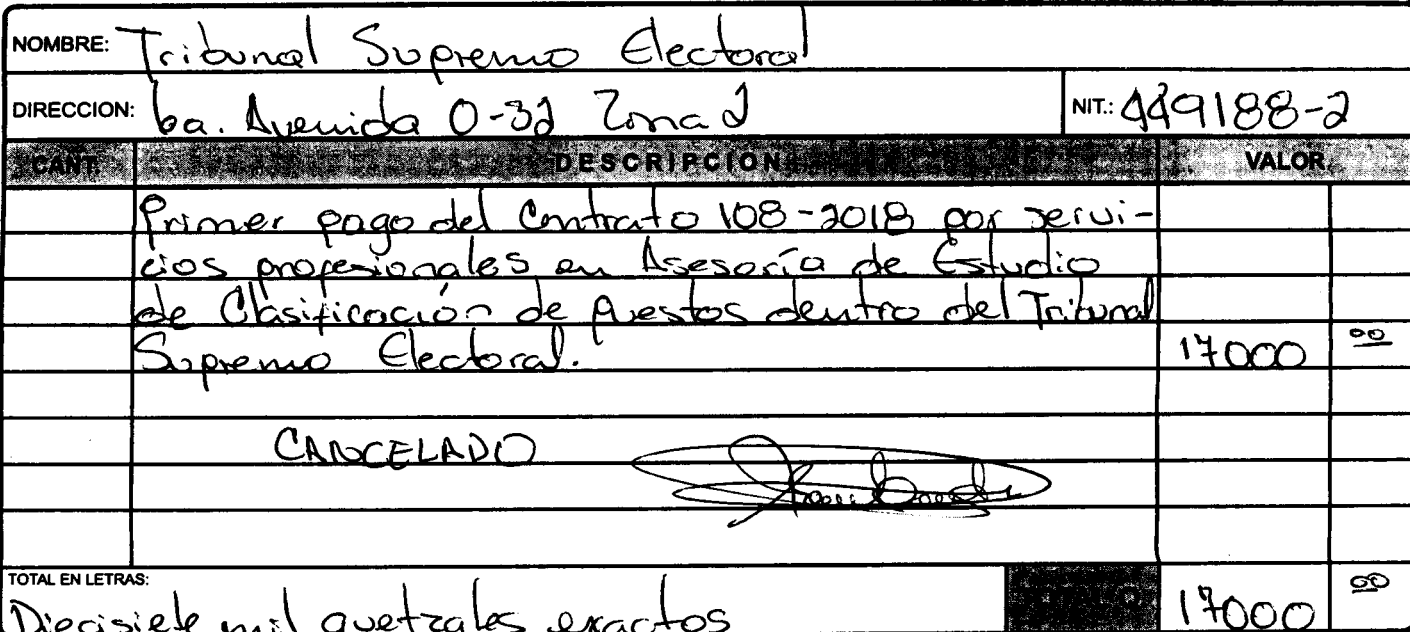 NOMBRE: Tribunal Supremo Electoral
DIRECCION: 6a. Avenida 0-32 Zona 2 NIT.: 449188-2
CANT. DESCRIPCION VALOR
Primer pago del Contrato 108-2018 por servi-
cios profesionales en Asesoría de Estudio
de Clasificación de Puestos dentro del Tribunal
Supremo Electoral. 17000 00
CANCELADO
TOTAL EN LETRAS:
Diecisiete mil quetzales exactos 17000 00